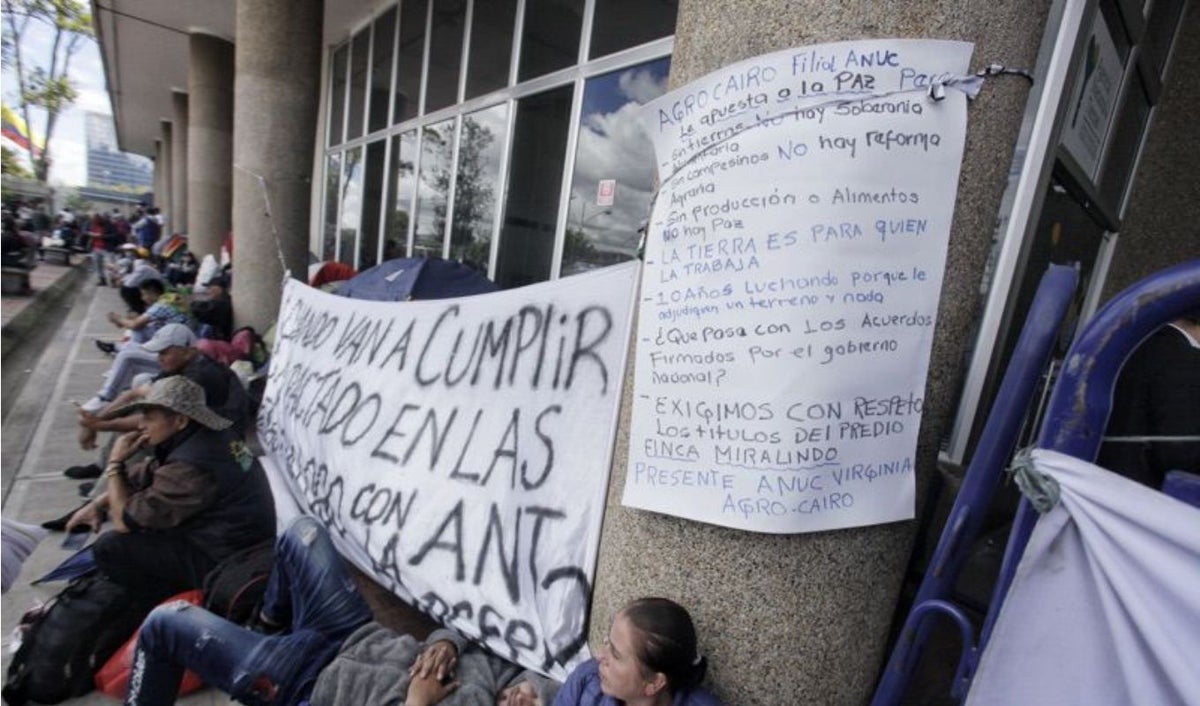 AGROCAIRO Filial ANUC
le apuesta a la PAZ Para
- Sin tierras No hay Soberania
Alimentaria
- Sin campesinos NO hay reforma
Agraria
- Sin producción o Alimentos
NO hay Paz
- LA TIERRA ES PARA QUIEN
LA TRABAJA
- 10 Años Luchando porque le
adjudiquen un terreno y nada
- ¿Que Pasa con Los Acuerdos
Firmados Por el gobierno
nacional?
- EXIGIMOS CON RESPETO
Los titulos DEL PREDIO
FINCA MIRALINDO
PRESENTE ANUC VIRGINIA
AGRO-CAIRO
CUANDO VAN A CUMPLIR
LO PACTADO EN LAS
CON ANT
LA